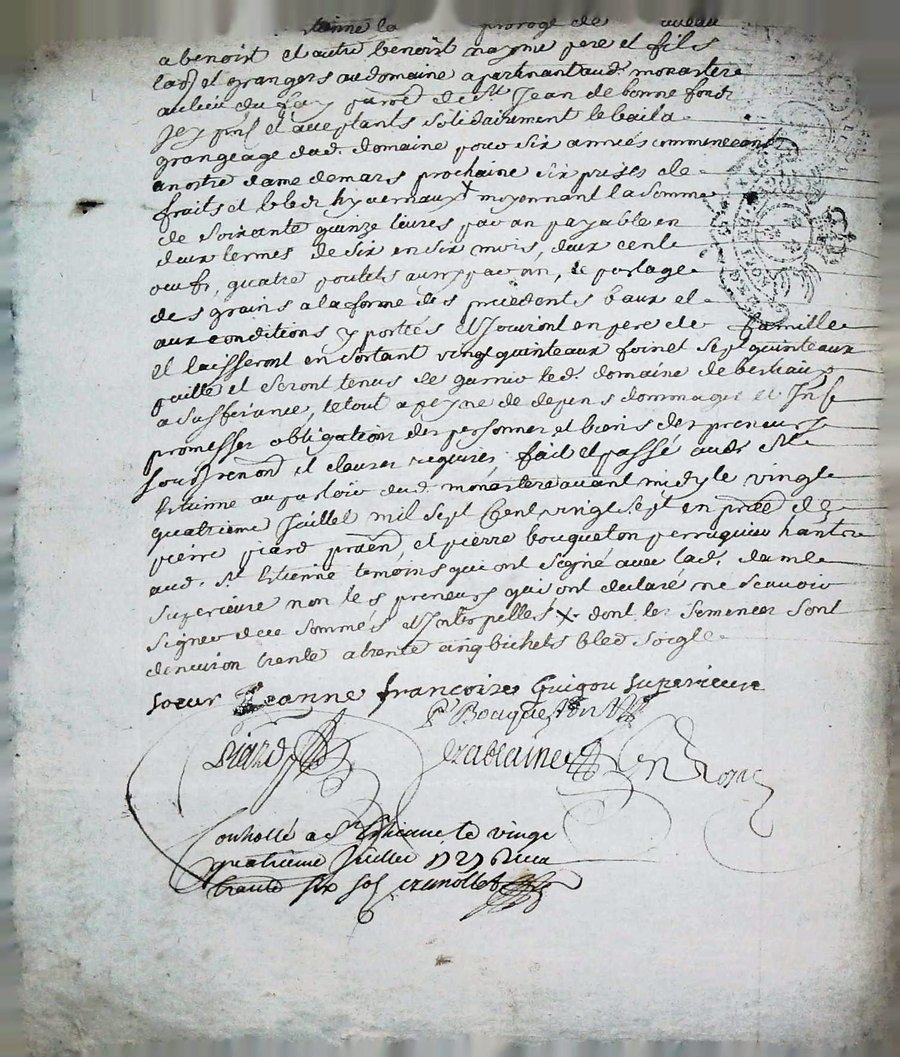 tienne la prorogé de nouveau
a benoist et autre benoist mayni pere et fils
labr et grangers au domaine apartenant aud. monastere
au lieu du fay parroe de st Jean de bonne fondz
Jcy pnt et acceptants solidairement le bail a
grangeage dud. domaine pour six années commenceans
a nostre dame de mars prochaine six prises de
fruits et bleds hyvernaux X moyennant la somme
de soixante quinze livres par an payable en
deux termes de six en six mois, deux cents
oeufs, quatre poulets aussy par an, le partage
des grains a la forme des precedents baux et
aux conditions y portées et Jouiront en pere de famille
et laisseront en sortant vingt quinteaux foin et sept quinteaux
paille et seront tenus de garnir led. domaine de bestiaux
a suffizance, le tout a peyne de depens dommages et Jnts
promesses obligations des personnes et biens des preneurs
soubs renons et clauses requises fait et passé aud. St
Etienne au parloir dud. monastere avant midy le vingt
quatrieme Juillet mil sept Cent vingt sept en pnce de
pierre piard praen, et pierre bouqueton perruquier hantz
aud. St Etienne temoins qui ont signé avec lad. dame
superieure non les preneurs qui ont declaré ne scavoir
signer de ce sommés et Jnterpellés X dont les semences sont
denviron trente a trente cinq bichets bled soigle
soeur Jeanne francoise Guigou superieure
P Bouqueton
piard
Controllé a St Ethienne le vingt
quatrieme Juillet 1727 Recu
trante six sol